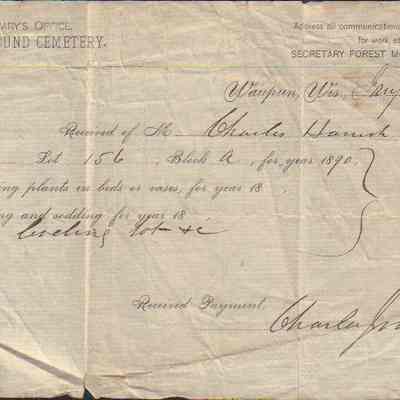 ARY'S OFFICE,
OUND CEMETERY.
Address all communication
for work
SECRETARY FOREST M
Waupun, Wis.,
Received of M Charles
Lot 156, Block A, for year 1890.
ng plants in beds or vases, for year 18 .
ng and sodding for year 18 .
leveling lot &c
Received Payment,
Charles